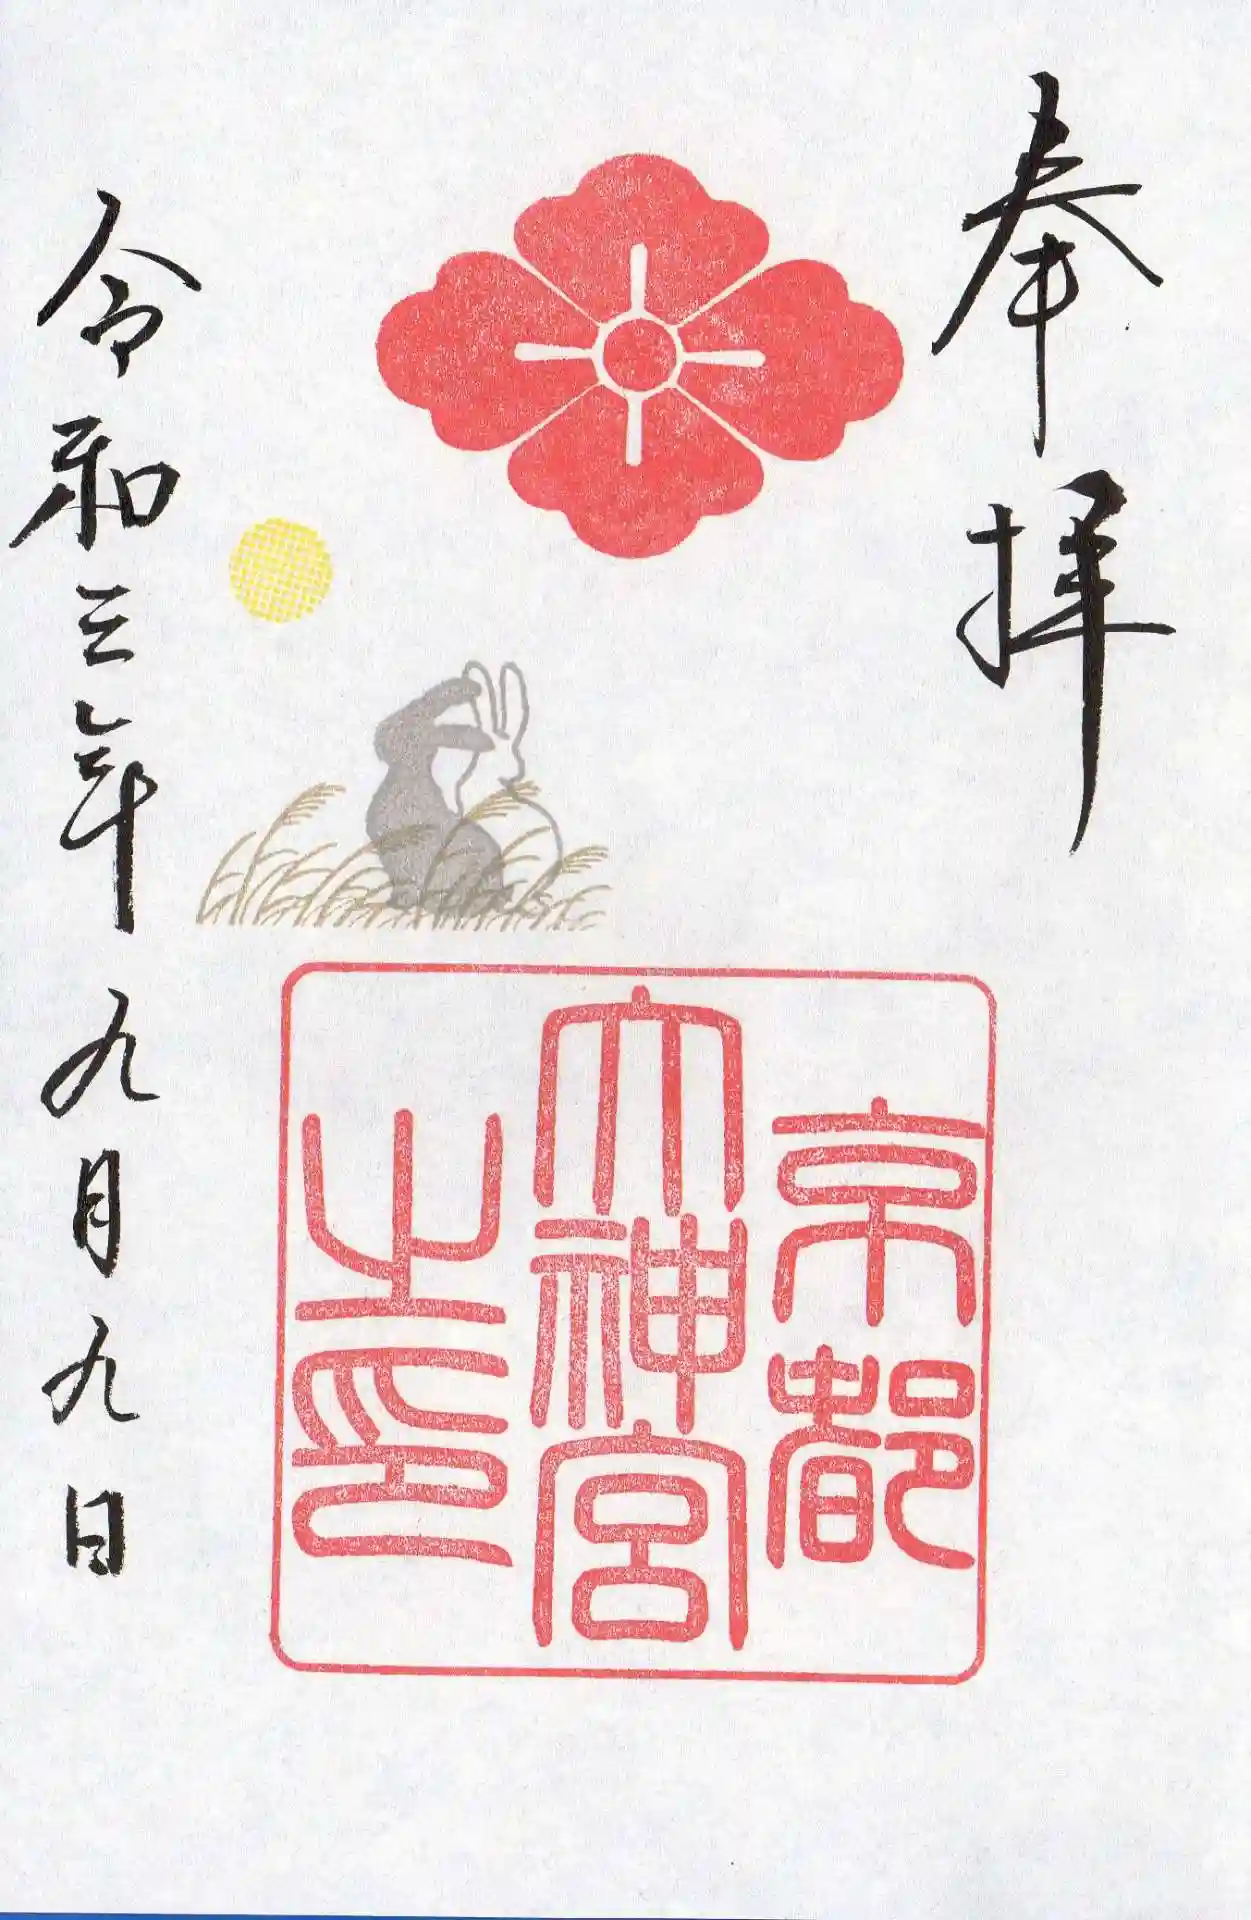 奉拝
京都
大神宮
之印
令和三年九月九日